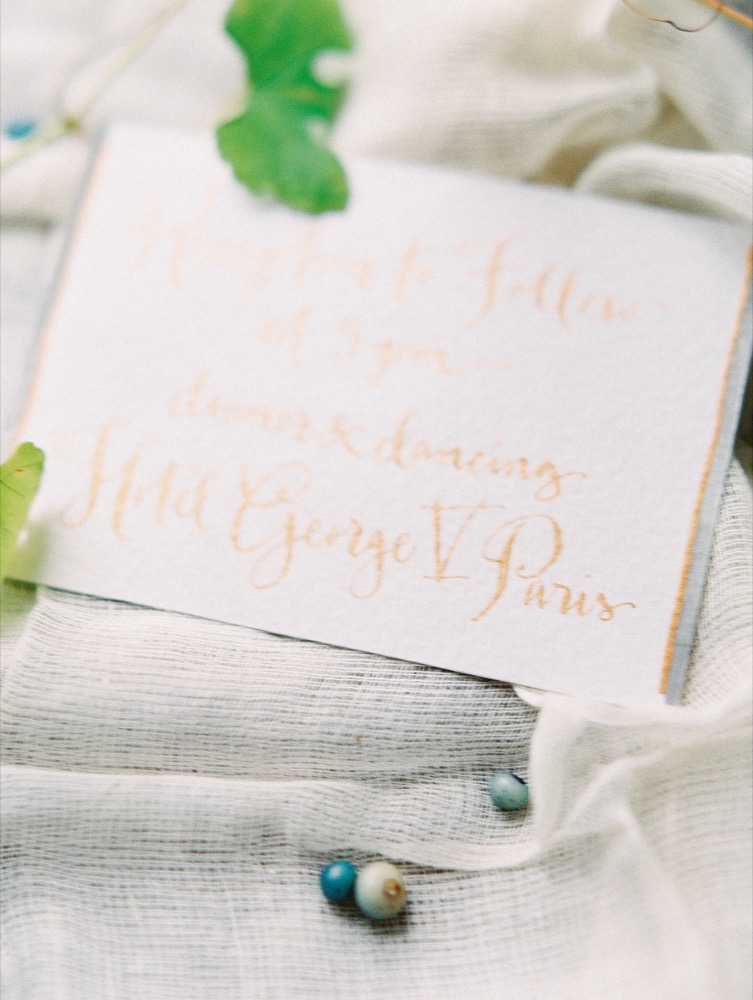 Reception to follow
at 5 pm
dinner & dancing
Hotel George V Paris